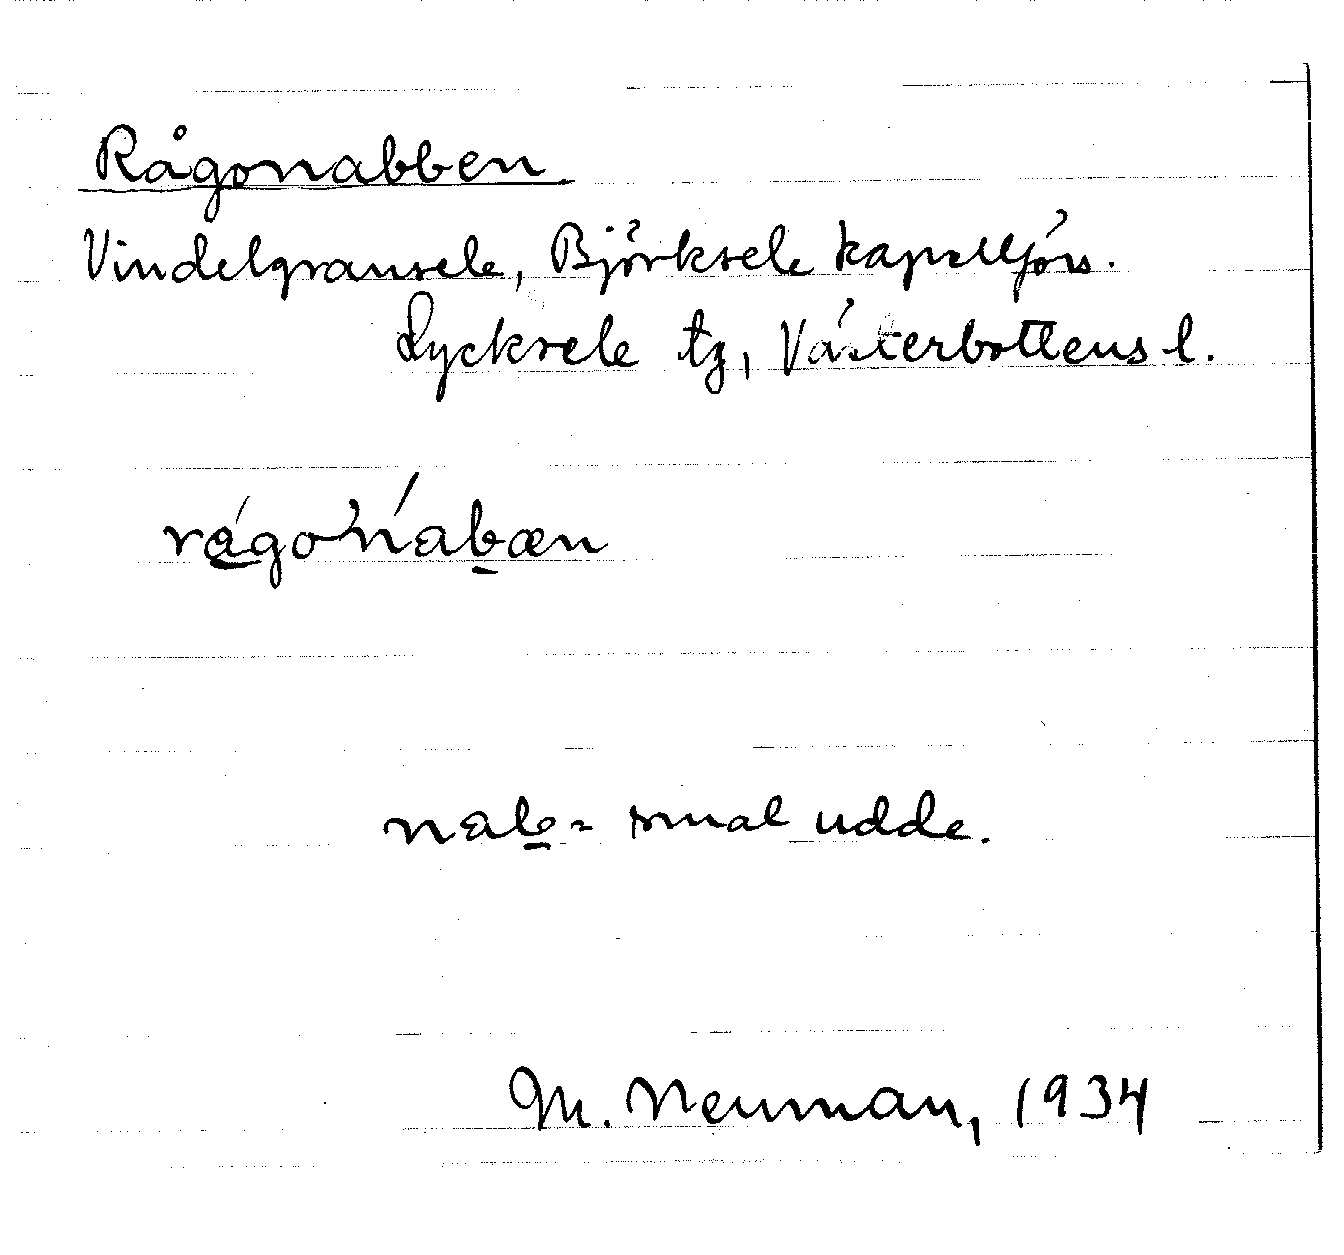 Rågonabben
Vindelgransele, Björksele kapellförs.
Lycksele tg, Västerbottens l.
rágonabæn
nab = smal udde.
M. Neuman, 1934